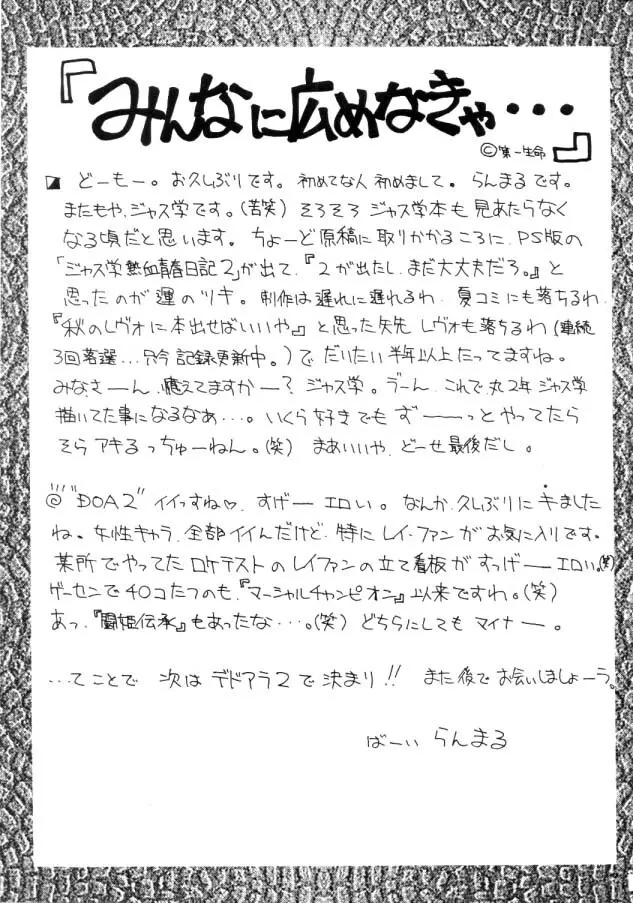 『みんなに広めなきゃ・・・』
©第一生命
どーもー。お久しぶりです。初めてな人初めまして。らんまるです。
またもや、ジャス学です。(苦笑)そろそろジャス学本も見あたらなく
なる頃だと思います。ちょーど原稿に取りかかるころに、PS版の
「ジャス学熱血青春日記2」が出て、『2が出たし、まだ大丈夫だろ。』と
思ったのが運のツキ。制作は遅れに遅れるわ、夏コミにも落ちるわ、
『秋のレヴォに本出せばいいや』と思った矢先レヴォも落ちるわ(連続
3回落選…只今記録更新中。)でだいたい半年以上たってますね。
みなさーん、燃えてますかー?ジャス学。うーん、これで丸2年ジャス学
描いてた事になるなあ…。いくら好きでもずーーーっとやってたら
そらアキるっちゅーねん。(笑)まあいいや、どーせ最後だし。
@"DOA2"イイっすね♡。すげーエロい。なんか久しぶりにキました
ね。女性キャラ、全部イイんだけど、特にレイ・ファンがお気に入りです。
某所でやってたロケテストのレイファンの立て看板がすっげーエロい。(笑)
ゲーセンで40コたつのも、『マーシャルチャンピオン』以来ですわ。(笑)
あっ、『闘姫伝承』もあったな・・・。(笑)どちらにしてもマイナー。
…てことで次はデドアラ2で決まり!!また後でお会いしましょーう。
ばーい らんまる